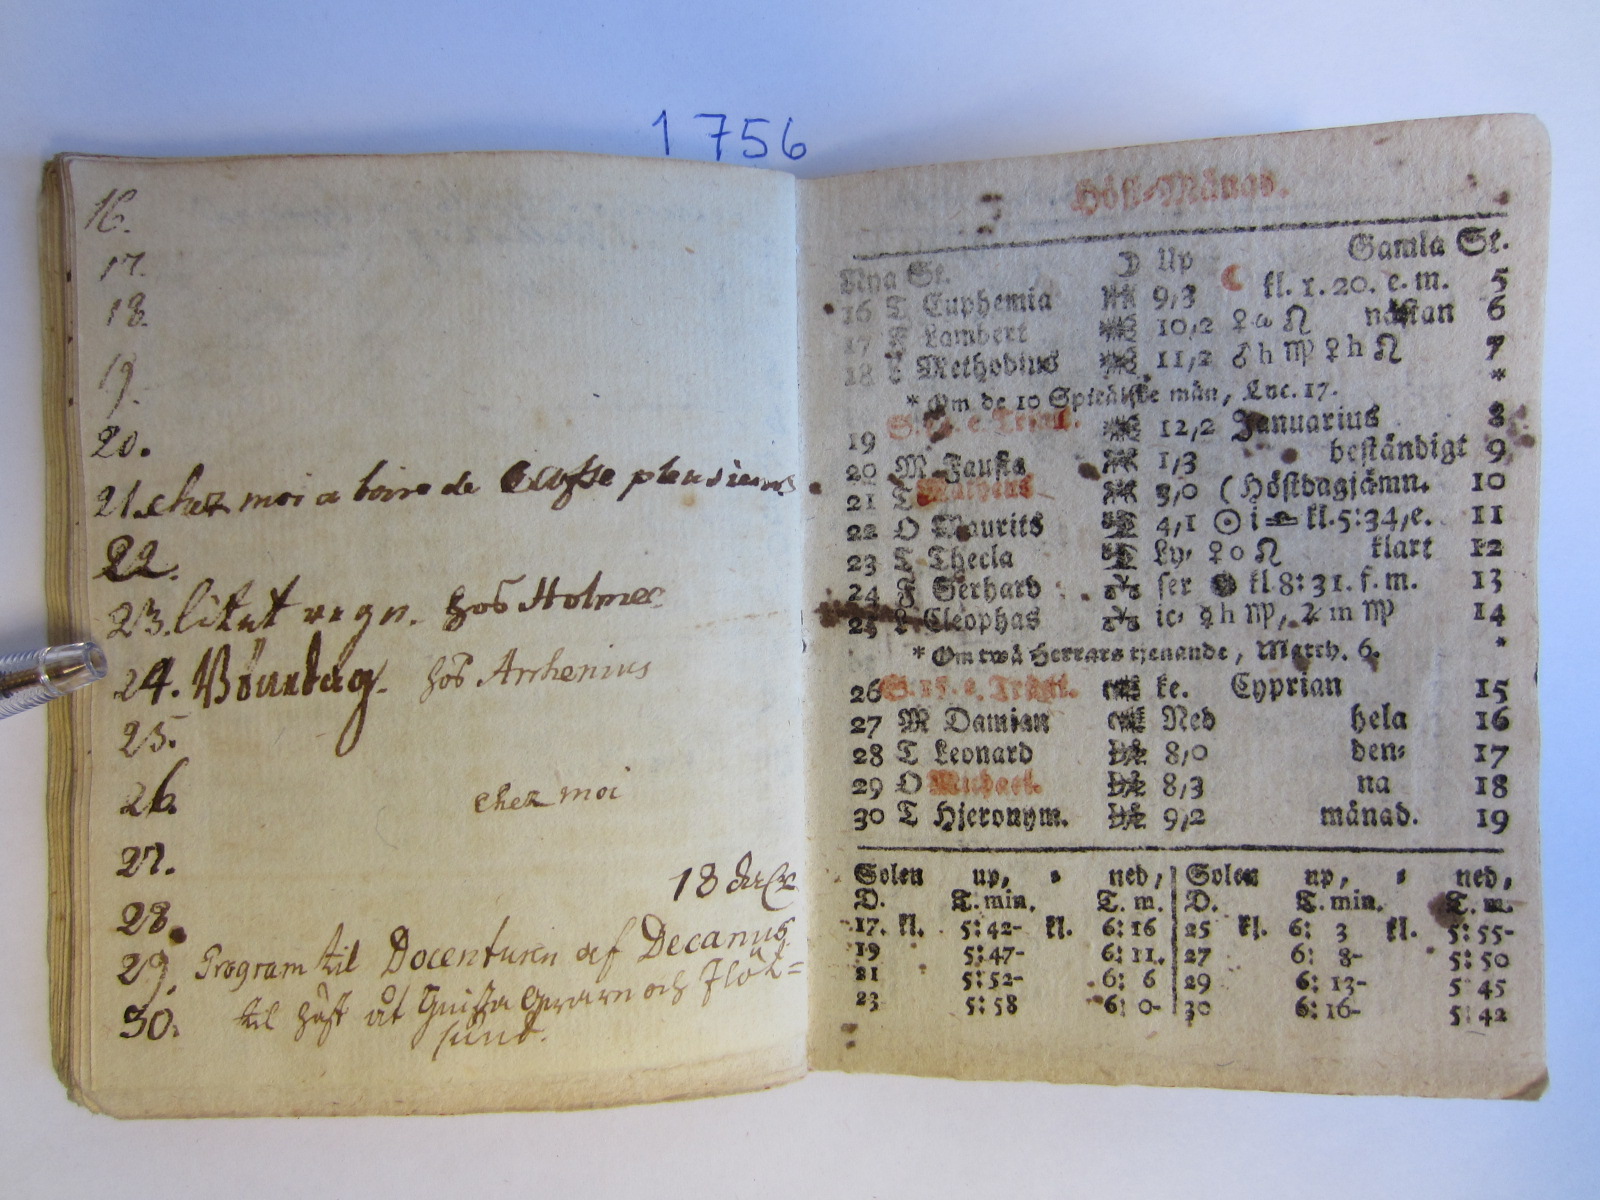 1756
16.
17.
18.
19.
20.
21. chez moi a boire de plusieurs
22.
23. litet regn. hos Holmer
24. Böndag. hos Arrhenius
25.
26. chez moi
27.
18 dal
28.
29. Program til Docenturen af Decanus
30. til häst åt och Flöt=
sund.
Höst-Månad.
Nya St. ☽ Up Gamla St.
16 T Euphemia 9,3 ☾ kl. 1. 20. e. m. 5
17 F Lambert 10,2 ♀ ω ♌ nästan 6
18 L Methodius 11,2 ♂ h ♍ ♀ h ♌ 7
* Om de 10 Spitälske män, Luc. 17. *
19 S. e. Trinit. 12,2 Januarius 8
20 M Fausta 1,3 beständigt 9
21 T Matheus 3,0 (Höstdagjämn. 10
22 O Maurits 4,1 ☉ i ♎ kl. 5:34, e. 11
23 T Thecla Ly- ♀ o ♌ klart 12
24 F Gerhard ser ● kl 8: 31. f. m. 13
25 L Cleophas ic- ☿ h ♍, ♃ in ♍ 14
* Om twå Herrars tjenande, Matth. 6. *
26 S. 15. e. Trinit. ke. Cyprian 15
27 M Damian Ned hela 16
28 T Leonard 8,0 den- 17
29 O Michael. 8,3 na 18
30 T Hjeronym. 9,2 månad. 19
Solen up, - ned, Solen up, - ned,
D. T. min. T. m. D. T. min. T. m.
17. kl. 5:42- kl. 6:16 25 kl. 6: 3 kl. 5:55-
19 5:47- 6:11. 27 6: 8- 5:50
21 5:52- 6: 6 29 6: 13- 5 45
23 5:58 6: 0- 30 6: 16- 5:42